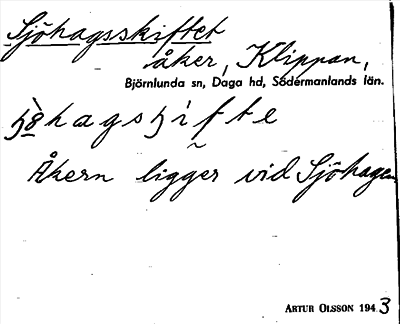 Sjöhagsskiftet
åker, Klippan,
Björnlunda sn, Daga hd, Södermanlands län.
Åkern ligger vid Sjöhagen
ARTUR OLSSON 1943